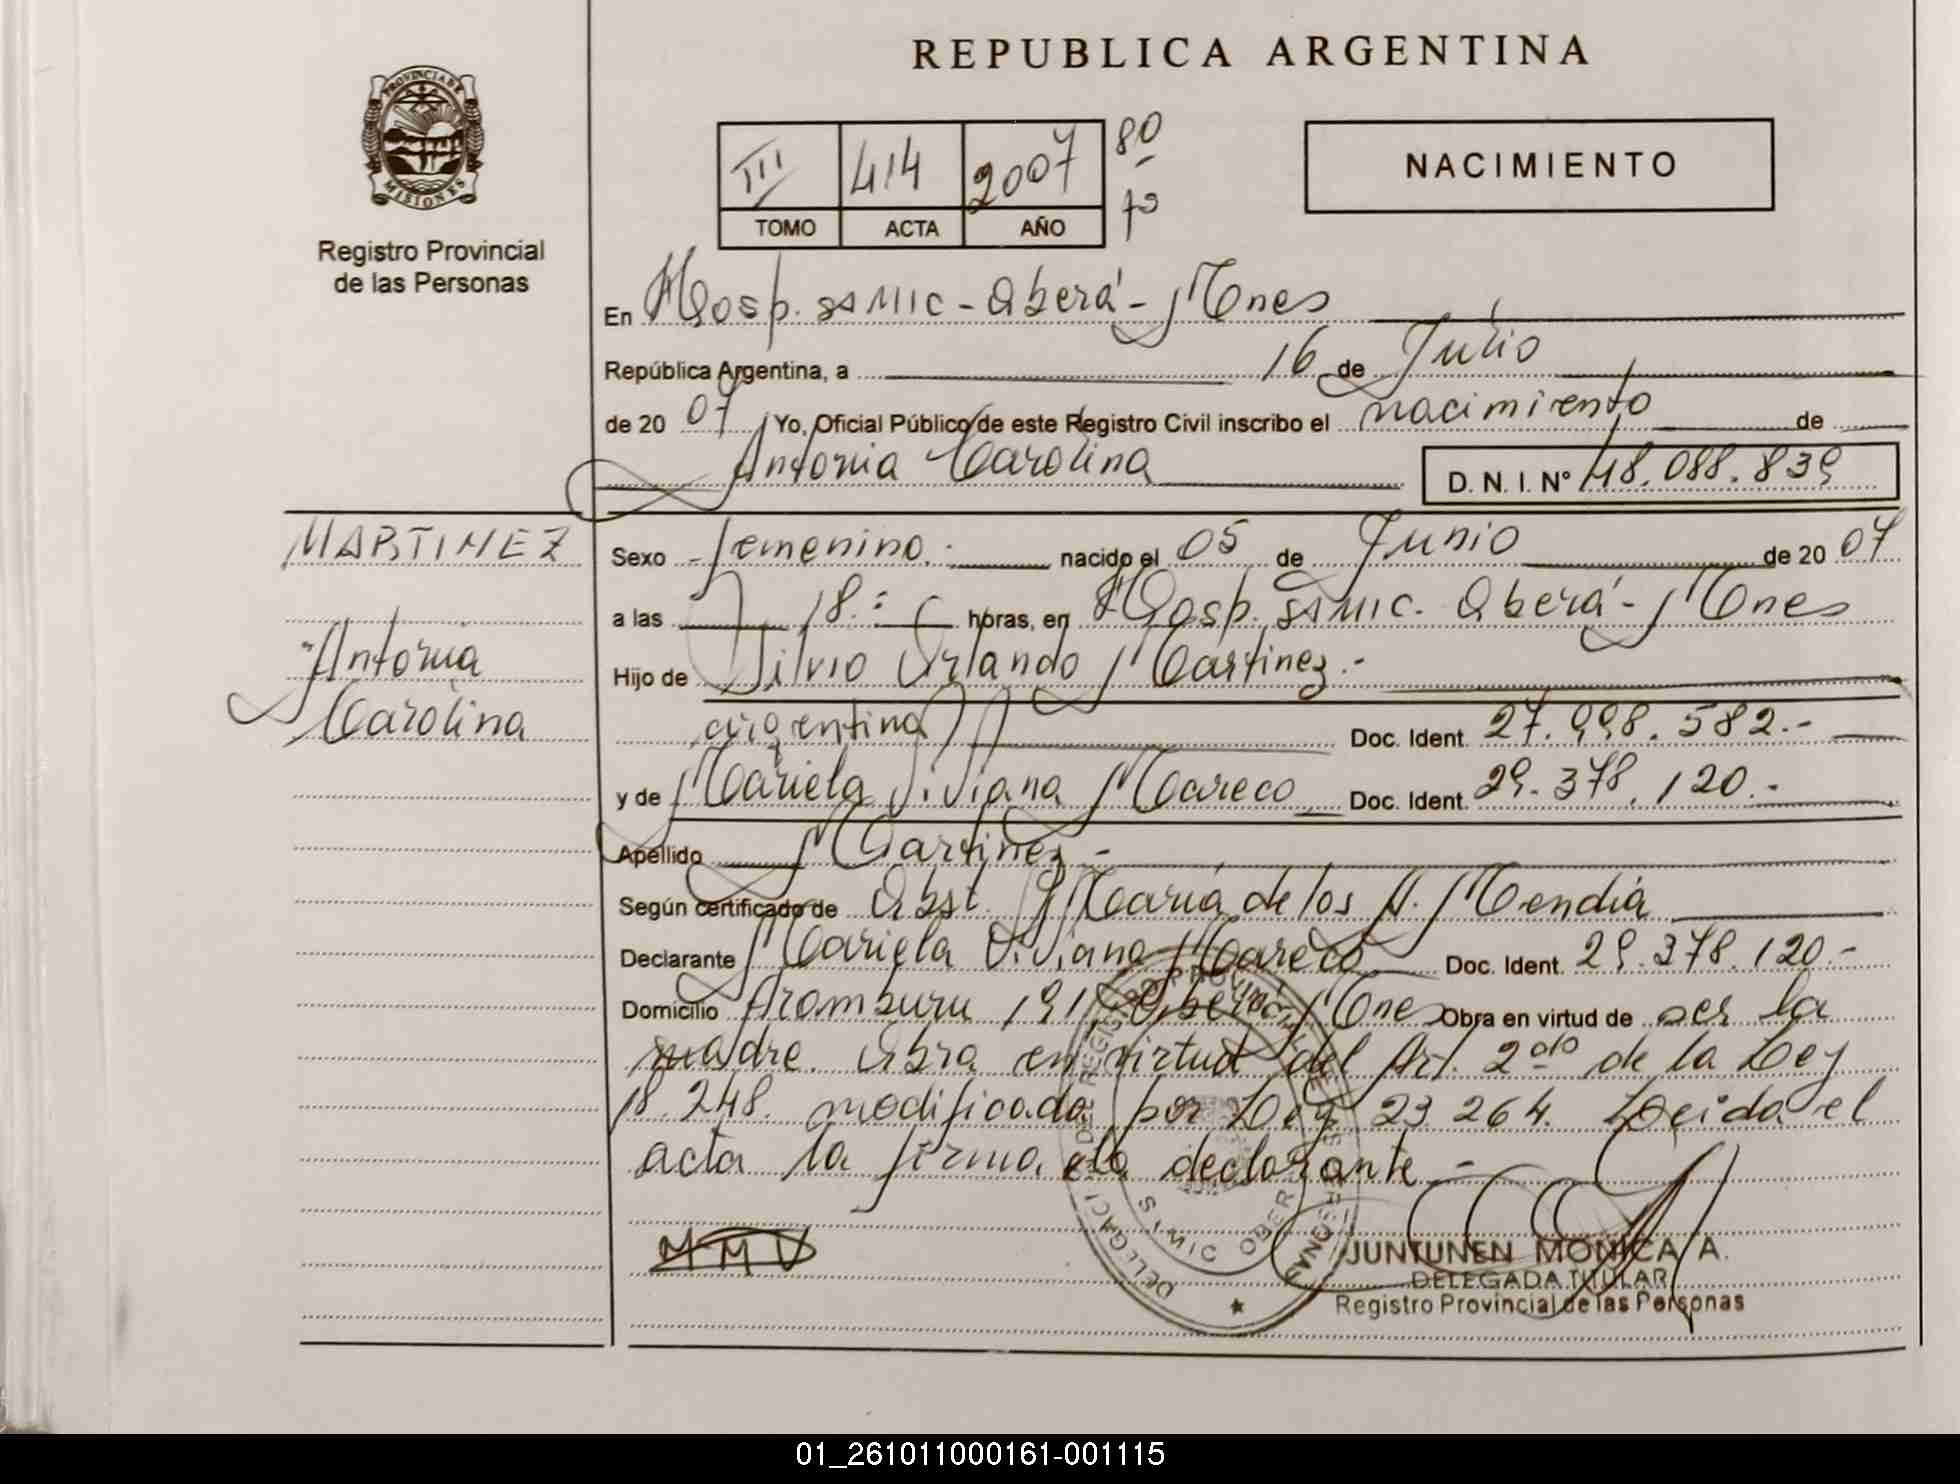 REPUBLICA ARGENTINA
PROVINCIA DE
MISIONES
Registro Provincial
de las Personas
III 414 2007 80
TOMO ACTA AÑO fº
NACIMIENTO
En Hosp. SAMIC - Oberá - Mnes
República Argentina, a 16 de Julio
de 20 07 Yo, Oficial Público de este Registro Civil inscribo el nacimiento de
Antonia Carolina D. N. I. Nº 48.088.839
MARTINEZ
Antonia
Carolina
Sexo femenino. nacido el 05 de Junio de 20 07
a las 18: horas, en Hosp. SAMIC. Oberá - Mnes
Hijo de Silvio Orlando Martinez.-
argentina Doc. Ident. 27.998.582.-
y de Mariela Viviana Mareco Doc. Ident. 29.378.120.-
Apellido Martinez -
Según certificado de Obst. María de los A. Mendia
Declarante Mariela Viviana Mareco Doc. Ident. 29.378.120.-
Domicilio Aramburu 191 Oberá Mnes Obra en virtud de ser la
madre. Obra en virtud del Art. 2do de la Ley
18.248. modificada por Ley 23264. Leida el
acta la firma la declarante -
MMV
SAMIC OBERA
JUNTUNEN MONICA A.
DELEGADA TITULAR
Registro Provincial de las Personas
01_261011000161-001115